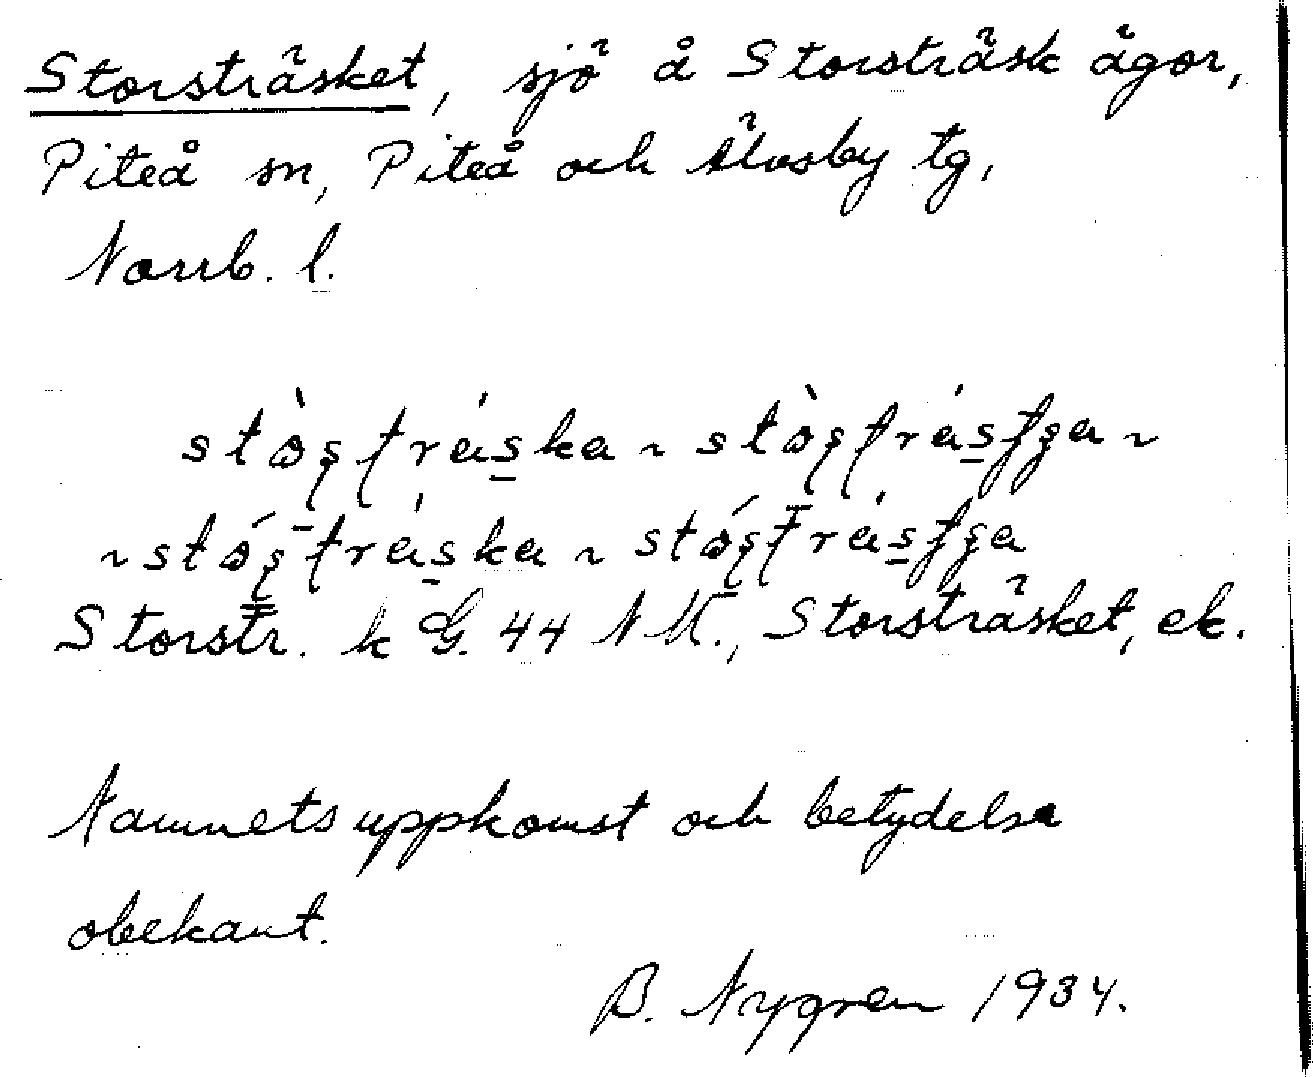 Storsträsket, sjö å Storsträsk ägor,
Piteå sn, Piteå och Älvsby tg,
Norrb. l.
Storstr. k G. 44 NM., Storsträsket, ek.
Namnets uppkomst och betydelse
obekant.
B. Nygren 1934.